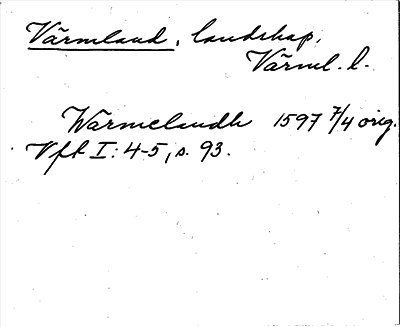 Värmland, landskap,
Värml. l.
Wärmelandh 1597 7/4 orig.
Vft I: 4-5, s. 93.